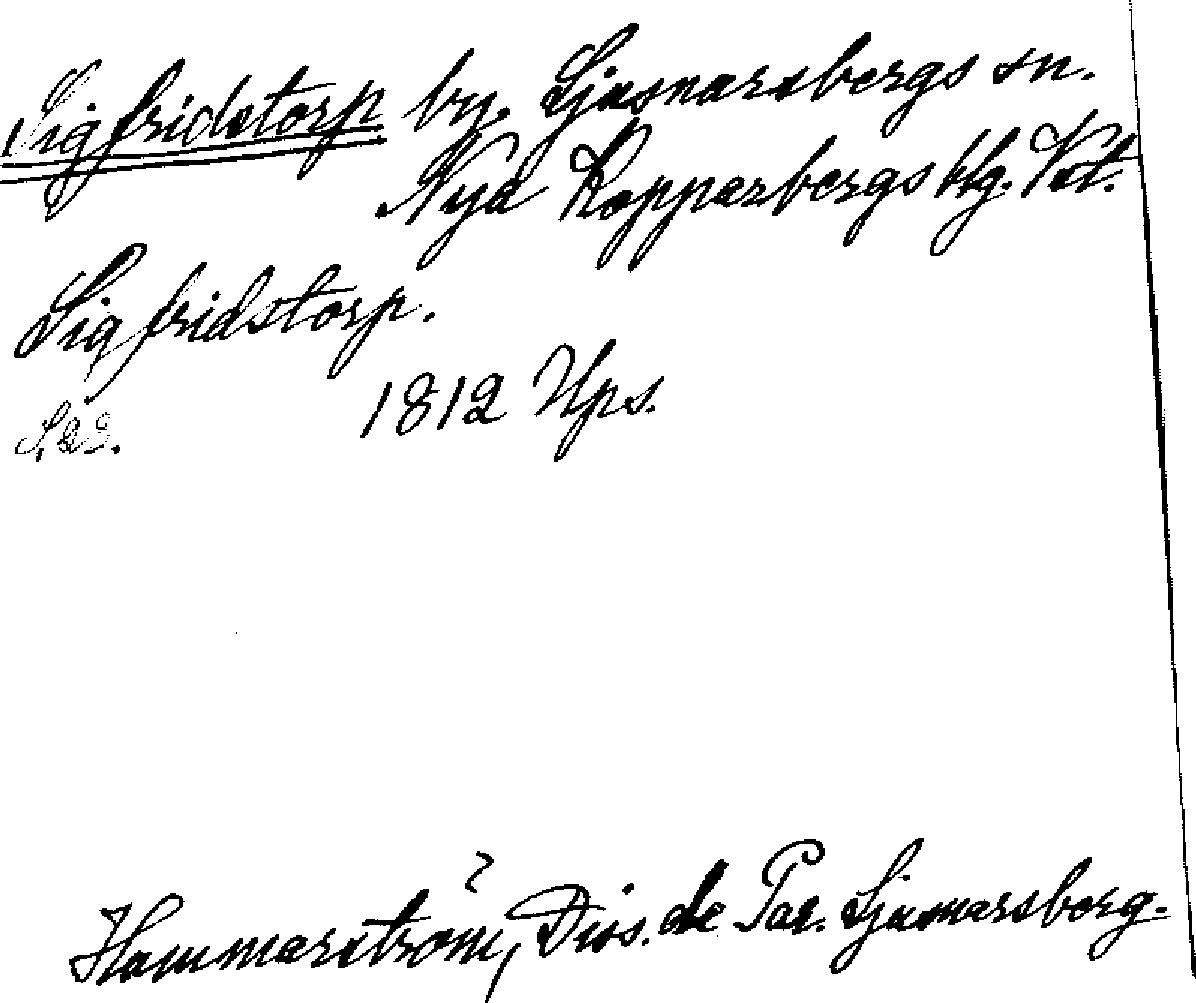 Sigfridstorp by. Ljusnarsbergs sn.
Nya Kopparbergs blg. Vst.
Sigfridstorp.
1812 Ups.
Hammarström, Diss. de Par. Ljusnarsberg.